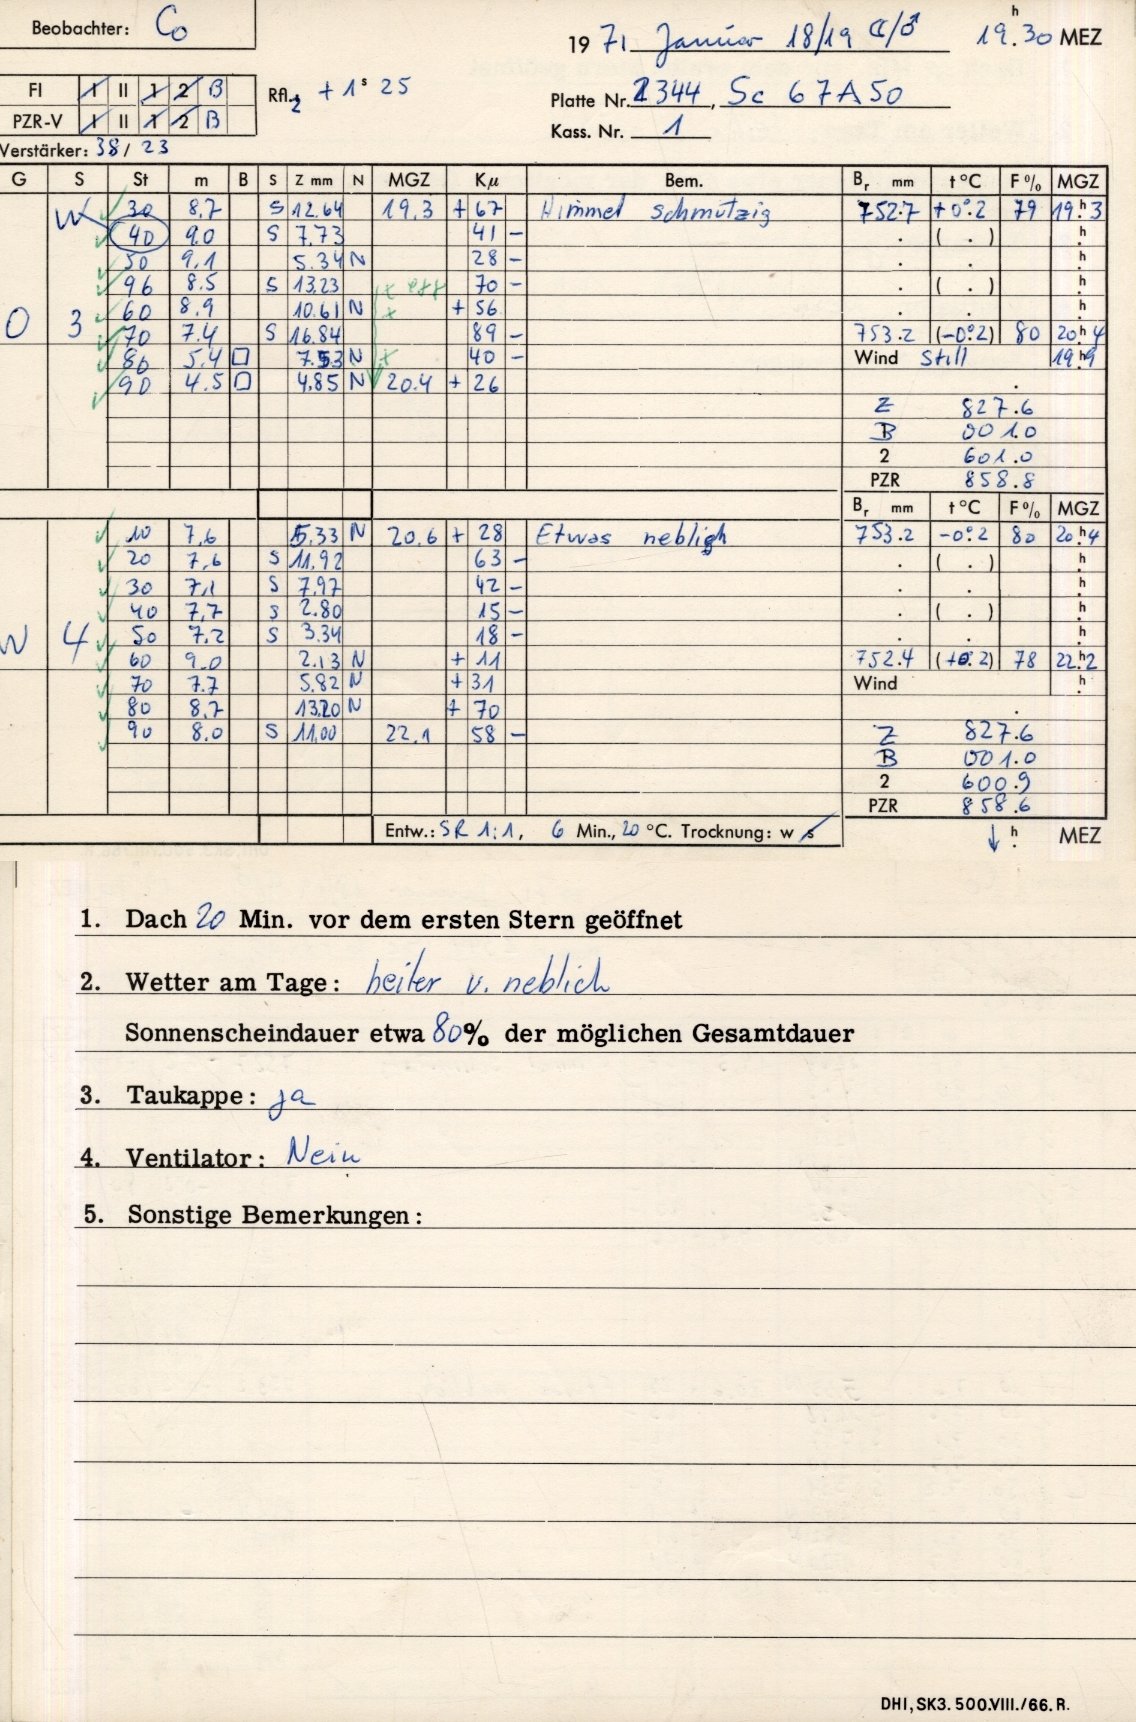 Beobachter: Co
1971 Januar 18/19 ☾/♂ 19h.30 MEZ
FI 1 II 1 2 B
Rfl.2 + 1s 25
Platte Nr. 2344, Sc 67A50
PZR-V 1 II 1 2 B
Kass. Nr. 1
Verstärker: 38/ 23
G S St m B S Z mm N MGZ Kμ Bem. Br mm t °C F % MGZ
W 30 8.7 S 12.64 19.3 + 67 Himmel schmutzig 752.7 +0°.2 79 19h.3
40 9.0 S 7.73 41 - . ( . ) h.
50 9.1 5.34 N 28 - . . h.
96 8.5 S 13.23 70 - . ( . ) h.
O 3 60 8.9 10.61 N + 56 . . h.
70 7.4 S 16.84 89 - 753.2 (-0°.2) 80 20h.4
80 5.4 □ 7.53 N 40 - Wind Still 19h.9
90 4.5 □ 4.85 N 20.4 + 26 .
Z 827.6
B 001.0
2 601.0
PZR 858.8
Br mm t °C F % MGZ
10 7.6 5.33 N 20.6 + 28 Etwas nebligh 753.2 -0°.2 80 20h.4
20 7.6 S 11.92 63 - . ( . ) h.
30 7.1 S 7.97 42 - . . h.
40 7.7 S 2.80 15 - . ( . ) h.
W 4 50 7.2 S 3.34 18 - . . h.
60 9.0 2.13 N + 11 752.4 (+0°.2) 78 22h.2
70 7.7 5.82 N + 31 Wind h.
80 8.7 13.20 N + 70 .
90 8.0 S 11.00 22.1 58 - Z 827.6
B 001.0
2 600.9
PZR 858.6
Entw.: SR 1:1, 6 Min., 20 °C. Trocknung: w s
↓ h. MEZ
1. Dach 20 Min. vor dem ersten Stern geöffnet
2. Wetter am Tage: heiter u. neblich
Sonnenscheindauer etwa 80% der möglichen Gesamtdauer
3. Taukappe: ja
4. Ventilator: Nein
5. Sonstige Bemerkungen:
DHI, SK3. 500.VIII./66. R.